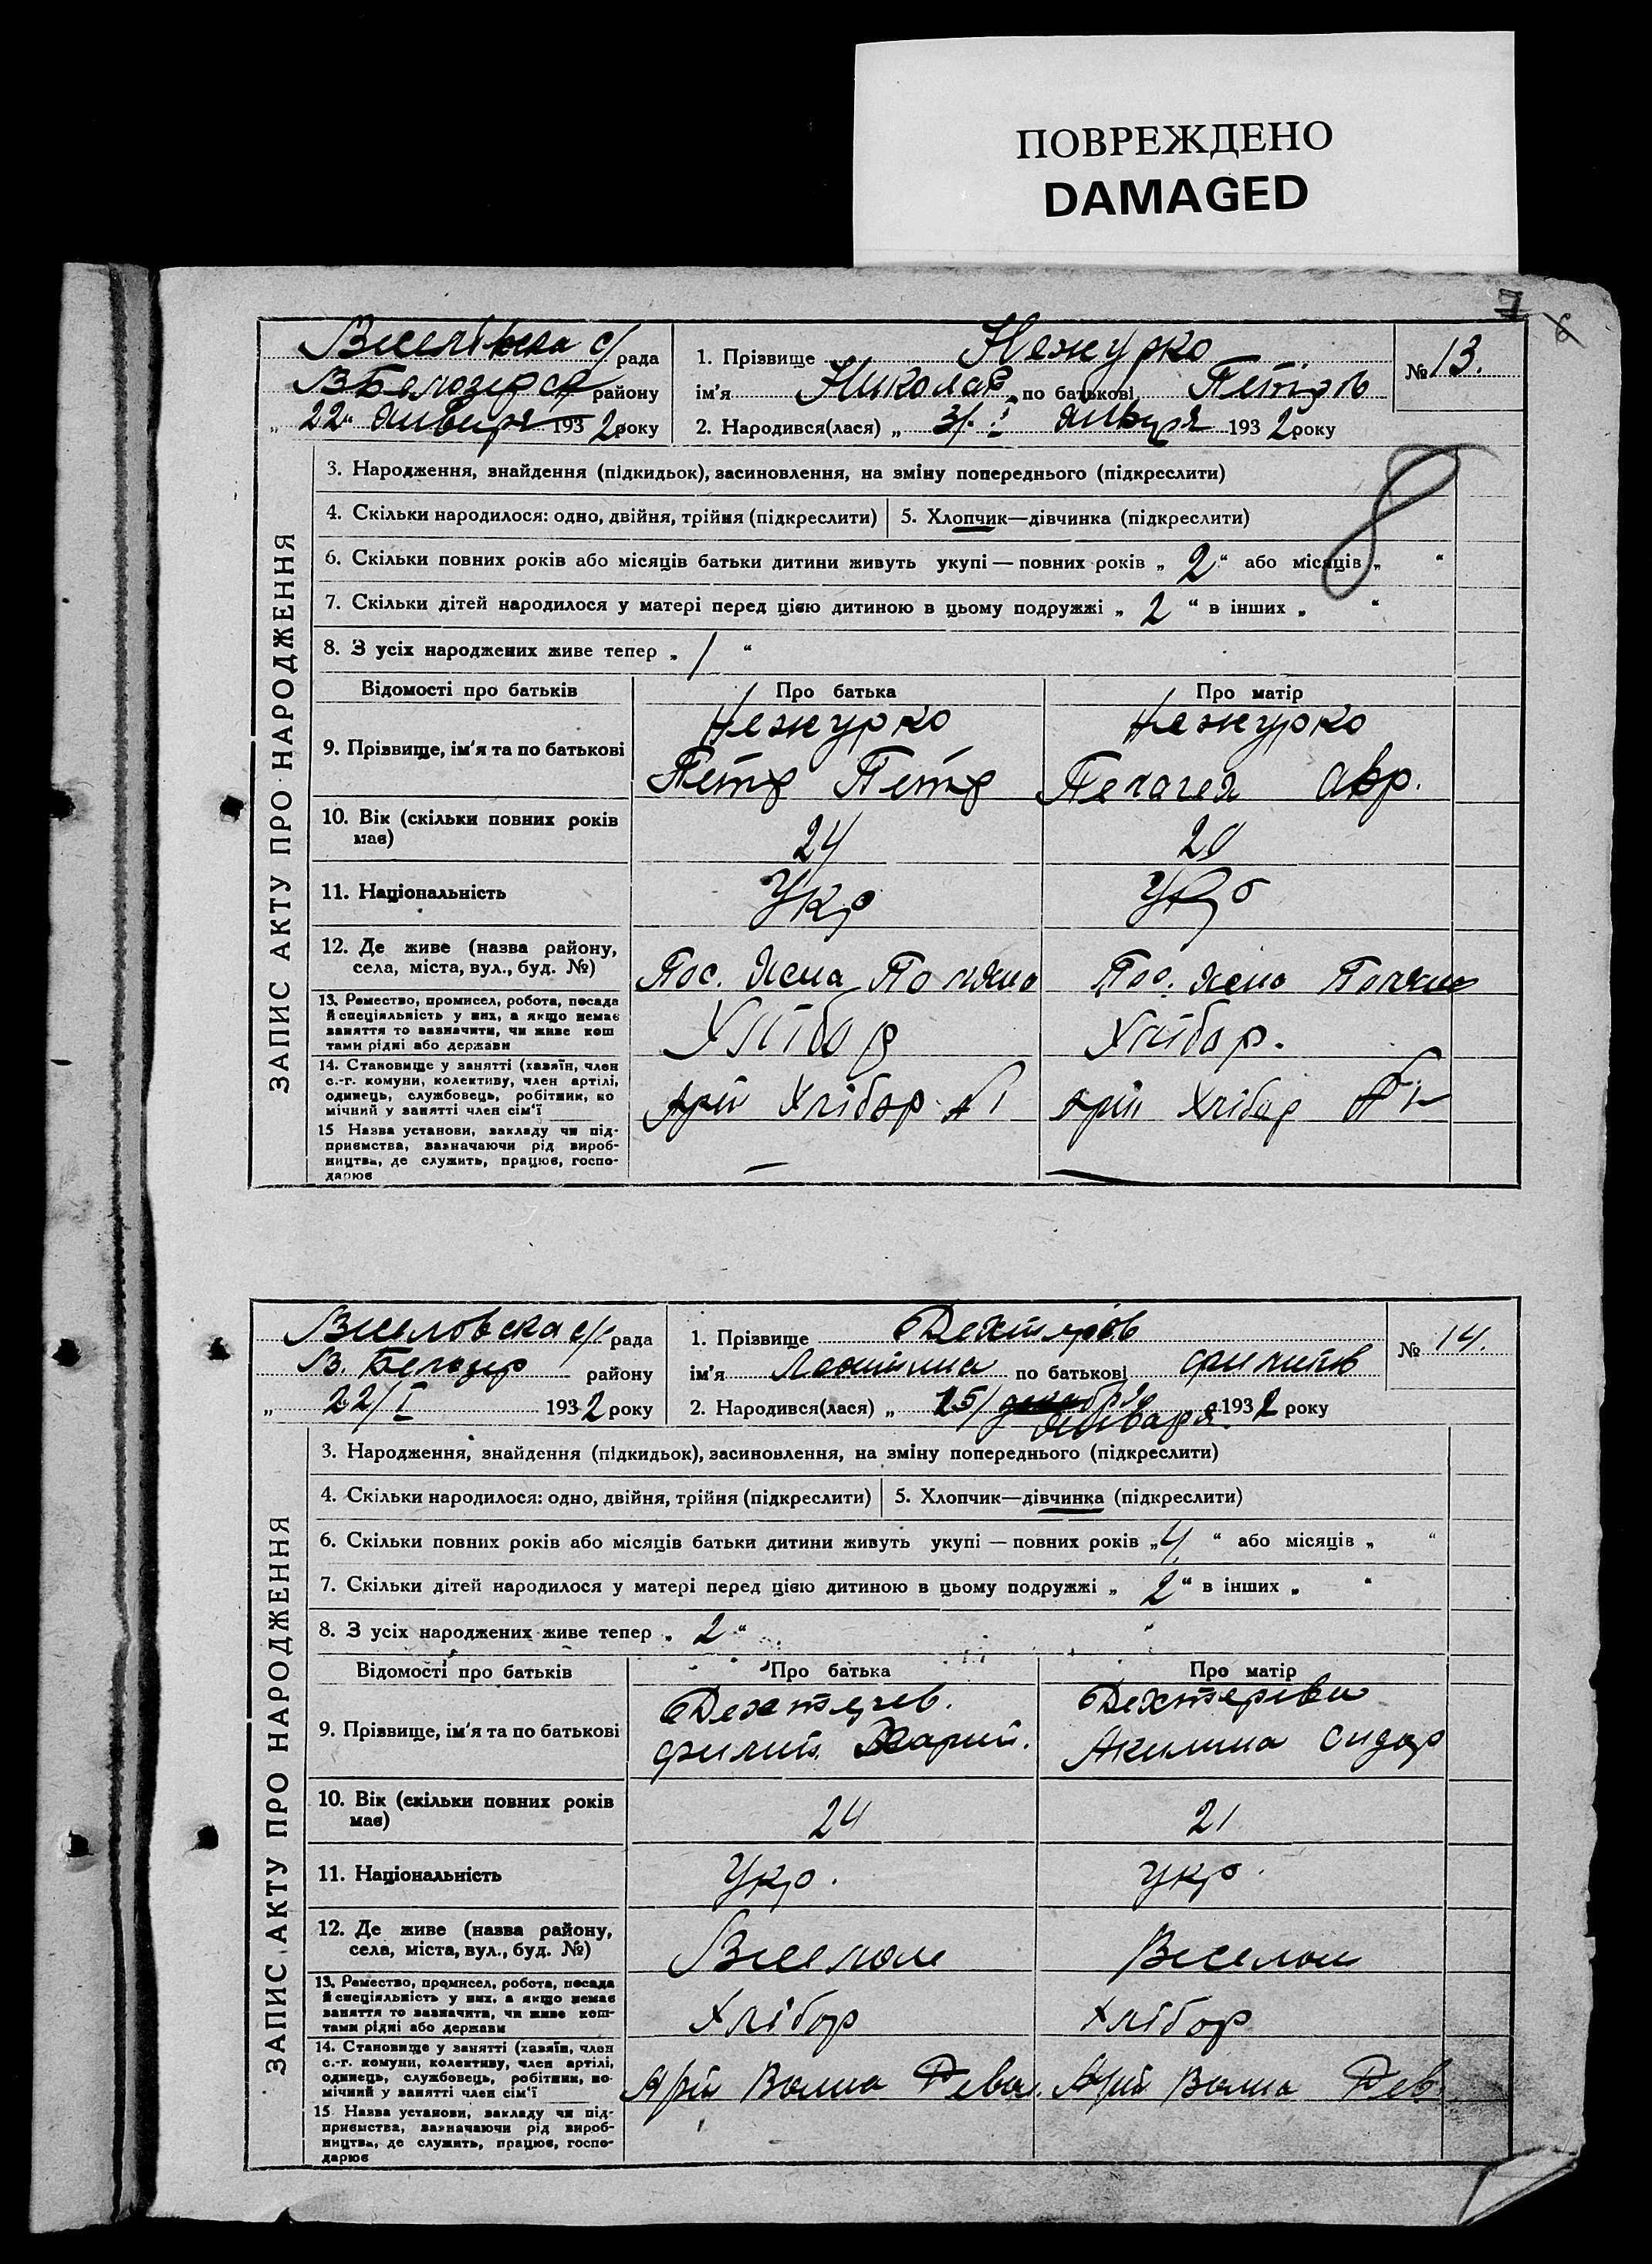 ПОВРЕЖДЕНО
DAMAGED
7
6
Веселівська с/рада
В Белозерся району
„ 22 " января 1932 року
1. Прізвище Нежурко
ім'я Николай по батькові Петров
2. Народився(лася) „ 3/ января 1932 року
№ 13.
ЗАПИС АКТУ ПРО НАРОДЖЕННЯ
3. Народження, знайдення (підкидьок), засиновлення, на зміну попереднього (підкреслити)
8
4. Скільки народилося: одно, двійня, трійня (підкреслити) 5. Хлопчик—дівчинка (підкреслити)
6. Скільки повних років або місяців батьки дитини живуть укупі — повних років „ 2 “ або місяців „ “
7. Скільки дітей народилося у матері перед цією дитиною в цьому подружжі „ 2 “ в інших „ “
8. З усіх народжених живе тепер „ 1 “
Відомості про батьків Про батька Про матір
9. Прізвище, ім'я та по батькові
Нежурко
Петр Петр
Нежурко
Пелагея Авр.
10. Вік (скільки повних років
має)
24
20
11. Національність
Укр
Укр
12. Де живе (назва району,
села, міста, вул., буд. №)
Пос. Ясна Поляна
Пос. Ясна Поляна
13. Ремество, промисел, робота, посада
й спеціяльність у них, а якщо немає
заняття то зазначити, чи живе кош
тами рідні або держави
Хлібор
Хлібор.
14. Становище у занятті (хазяїн, член
с.-г. комуни, колективу, член артілі,
одинець, службовець, робітник, по
мічний у занятті член сім'ї
Аріл Хлібор
Аріл Хлібор
15 Назва установи, закладу чи під-
приємства, зазначаючи рід вироб-
ництва, де служить, працює, госпо-
дарює
—
—
Веселовска с/рада
В. Белозер району
„ 22/I 1932 року
1. Прізвище Дехтярёв
ім'я по батькові Филипов
2. Народився(лася) „ 15/ декабря 1932 року
января
№ 14.
ЗАПИС АКТУ ПРО НАРОДЖЕННЯ
3. Народження, знайдення (підкидьок), засиновлення, на зміну попереднього (підкреслити)
4. Скільки народилося: одно, двійня, трійня (підкреслити) 5. Хлопчик—дівчинка (підкреслити)
6. Скільки повних років або місяців батьки дитини живуть укупі — повних років „ 4 “ або місяців „ “
7. Скільки дітей народилося у матері перед цією дитиною в цьому подружжі „ 2 “ в інших „ “
8. З усіх народжених живе тепер „ 2 “
Відомості про батьків Про батька Про матір
9. Прізвище, ім'я та по батькові
Дехтярев.
Филип. Харит.
Дехтярева
Акилина Сидор
10. Вік (скільки повних років
має)
24
21
11. Національність
Укр.
Укр.
12. Де живе (назва району,
села, міста, вул., буд. №)
Веселом
Веселом
13. Ремество, промисел, робота, посада
й спеціяльність у них, а якщо немає
заняття то зазначити, чи живе кош-
тами рідні або держави
Хлібор
Хлібор
14. Становище у занятті (хазяїн, член
с.-г. комуни, колективу, член артілі,
одинець, службовець, робітник, по-
мічний у занятті член сім'ї
Арт Волна Девол.
Арт Волна Дев.
15 Назва установи, закладу чи під-
приємства, зазначаючи рід вироб-
ництва, де служить, працює, госпо-
дарює